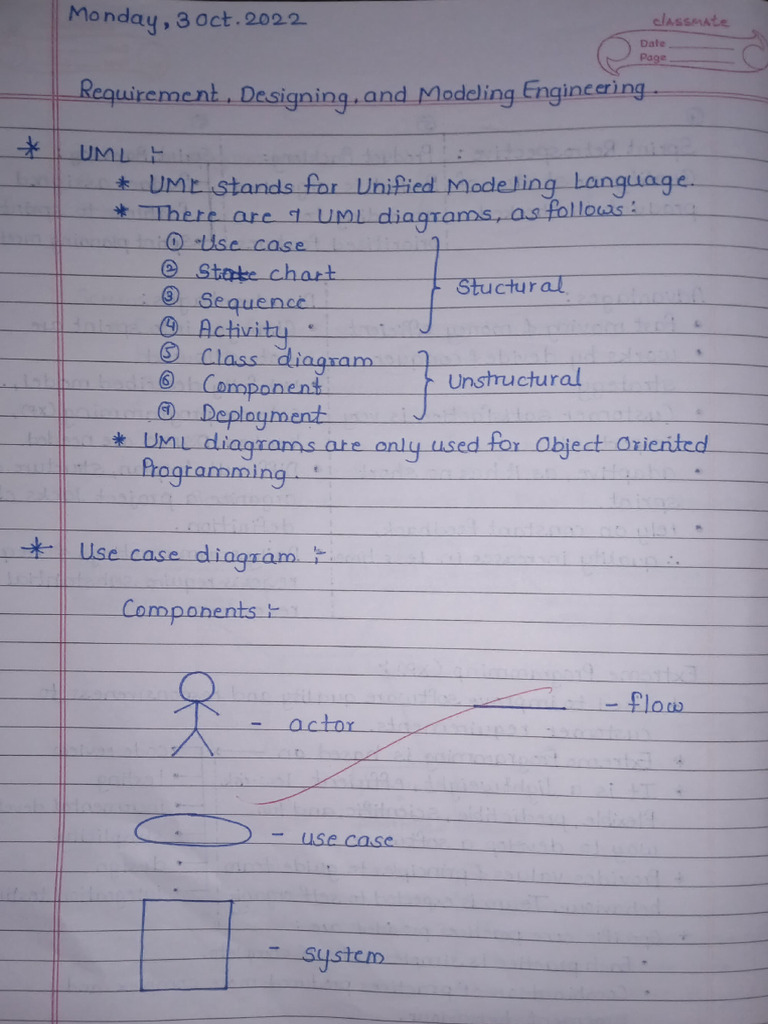 Monday, 3 Oct. 2022
classmate
Date
Page
Requirement, Designing, and Modeling Engineering.
* UML :-
* UML stands for Unified Modeling Language.
* There are 7 UML diagrams, as follows:
① Use case
② State chart
③ Sequence
④ Activity
Stuctural
⑤ Class diagram
⑥ Component
⑦ Deployment
Unstructural
* UML diagrams are only used for Object Oriented
Programming.
* Use case diagram :-
Components :-
- actor
- flow
- use case
- system